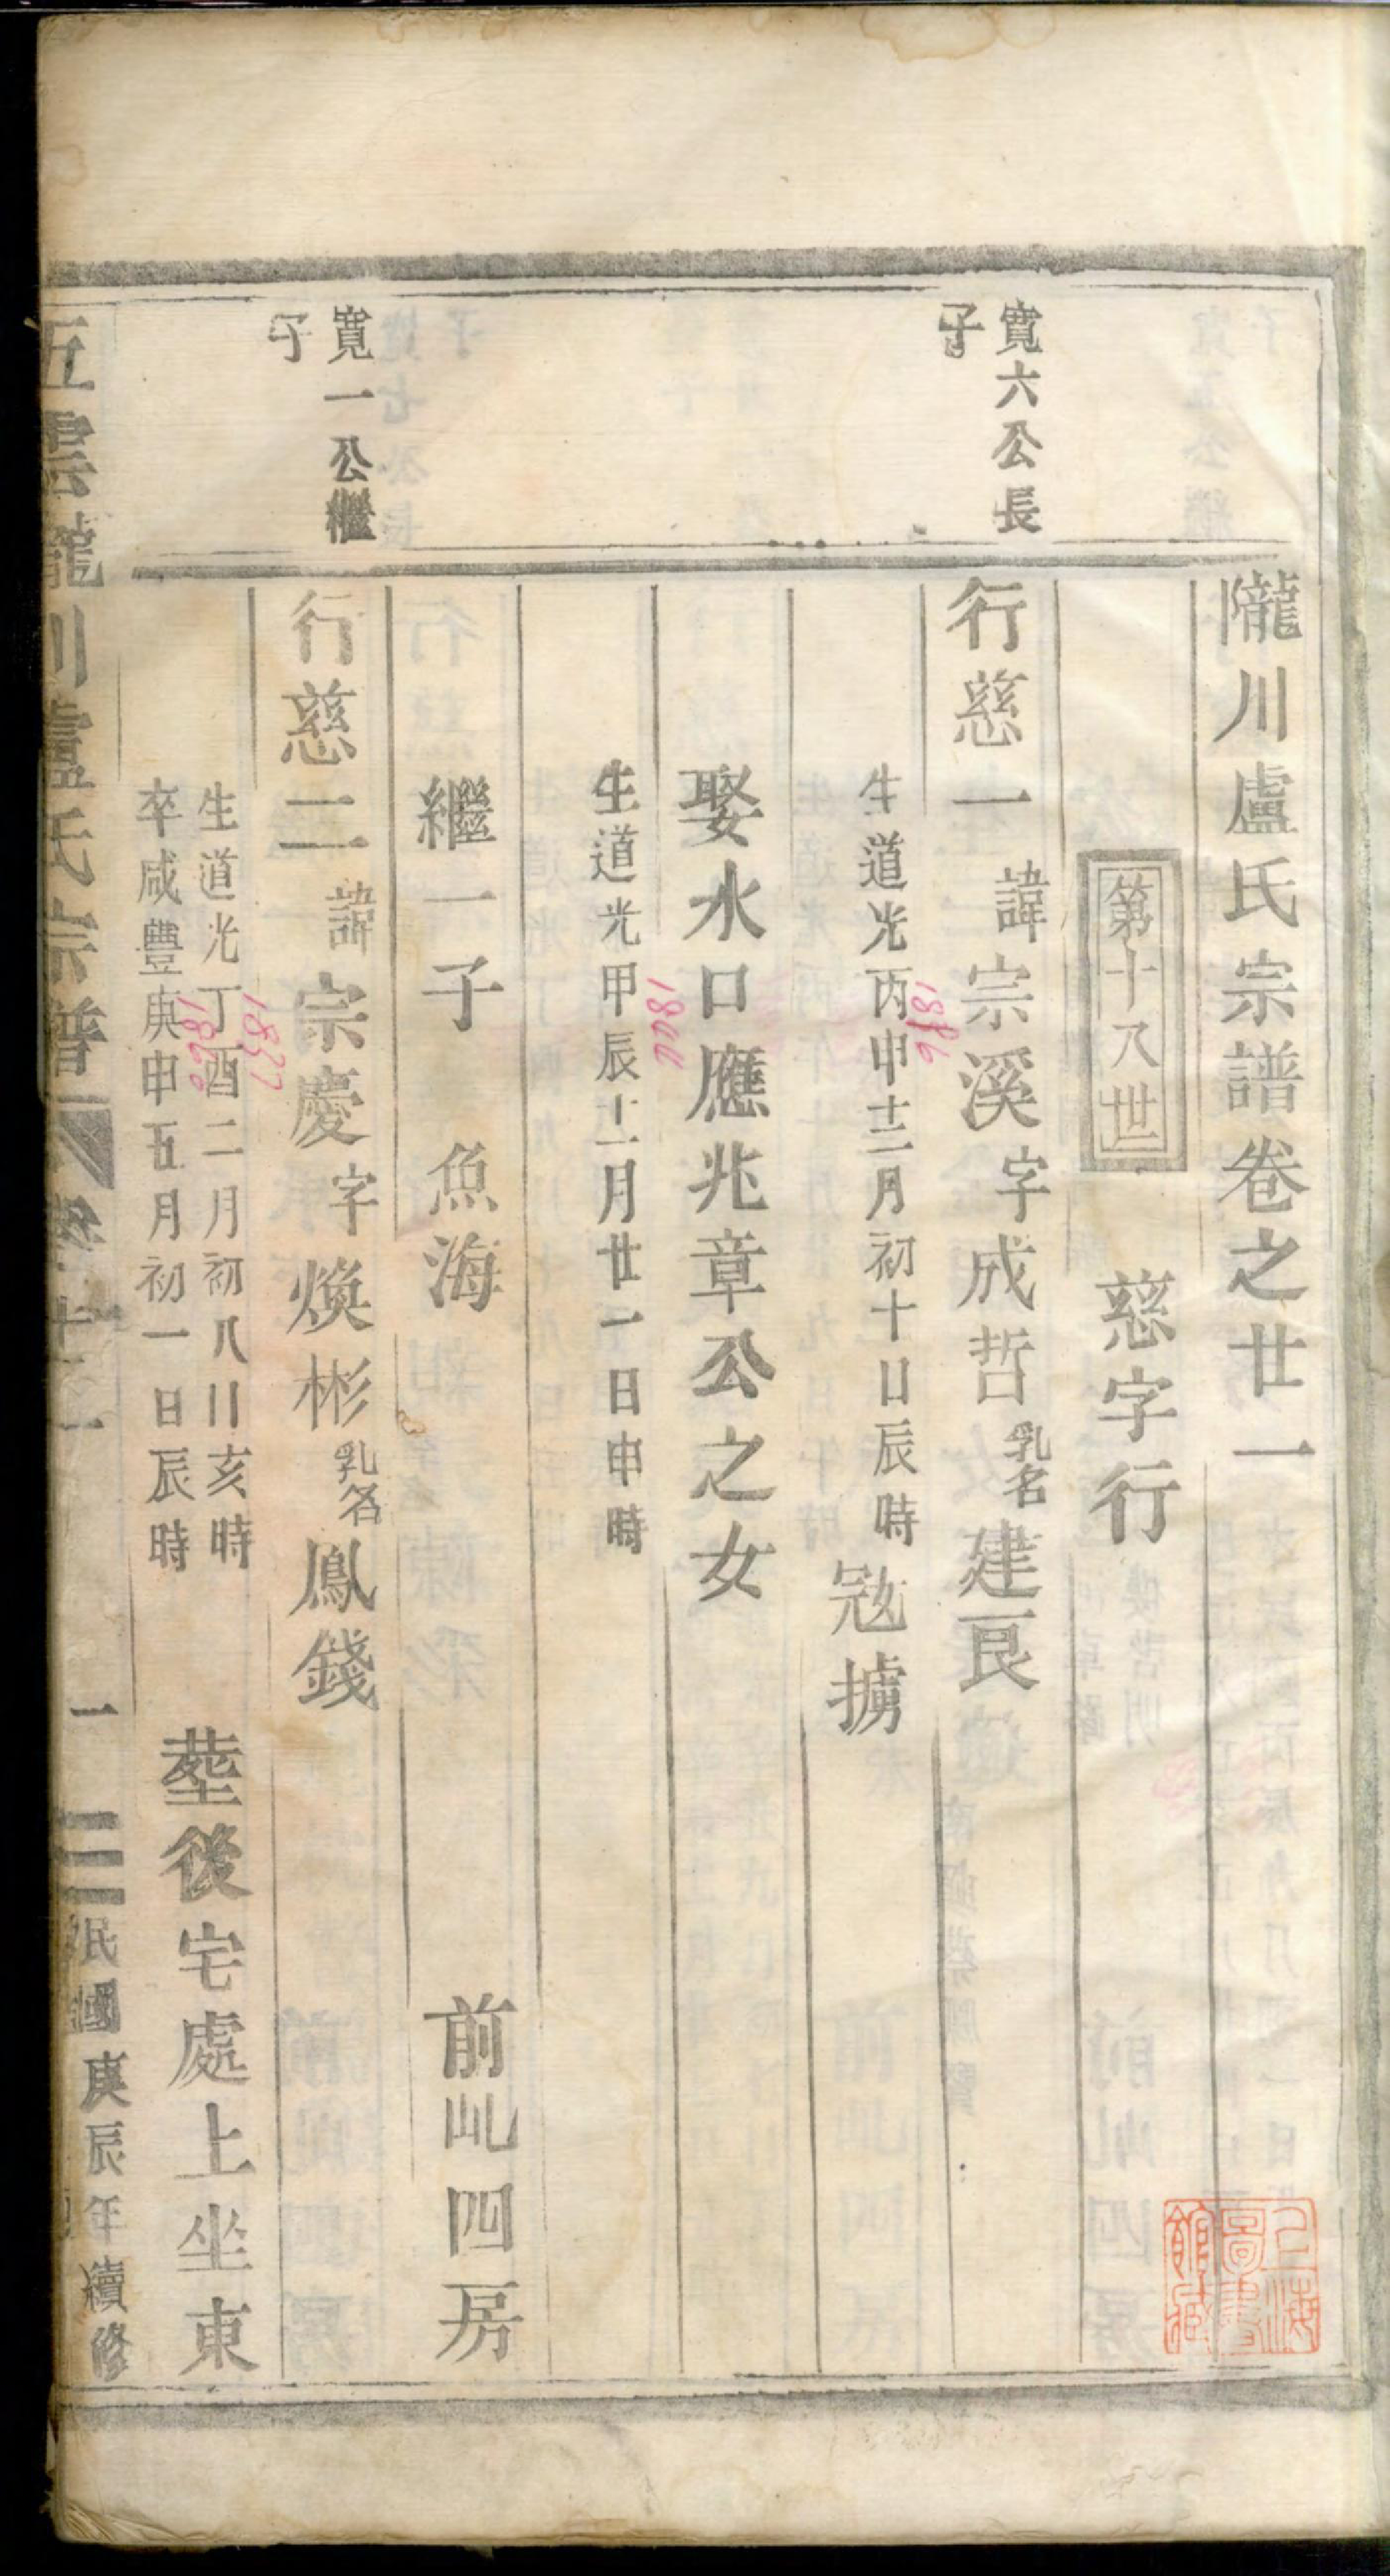 隴川盧氏宗譜卷之廿一
第十八世
慈字行
寬六公長
子
行慈一 諱宗溪字成哲乳名建艮
1896
生道光丙申十二月初十日辰時
寇擄
娶水口應兆章公之女
生道光甲辰十二月廿一日申時
繼一子 魚海
前乢四房
寬一公繼
子
行慈二 諱宗慶字煥彬乳名鳳錢
1837
生道光丁酉二月初八日亥時
1860
卒咸豐庚申五月初一日辰時
塟後宅處上坐東
五雲隴川盧氏宗譜
一
民國庚辰年續修
上海圖書館藏